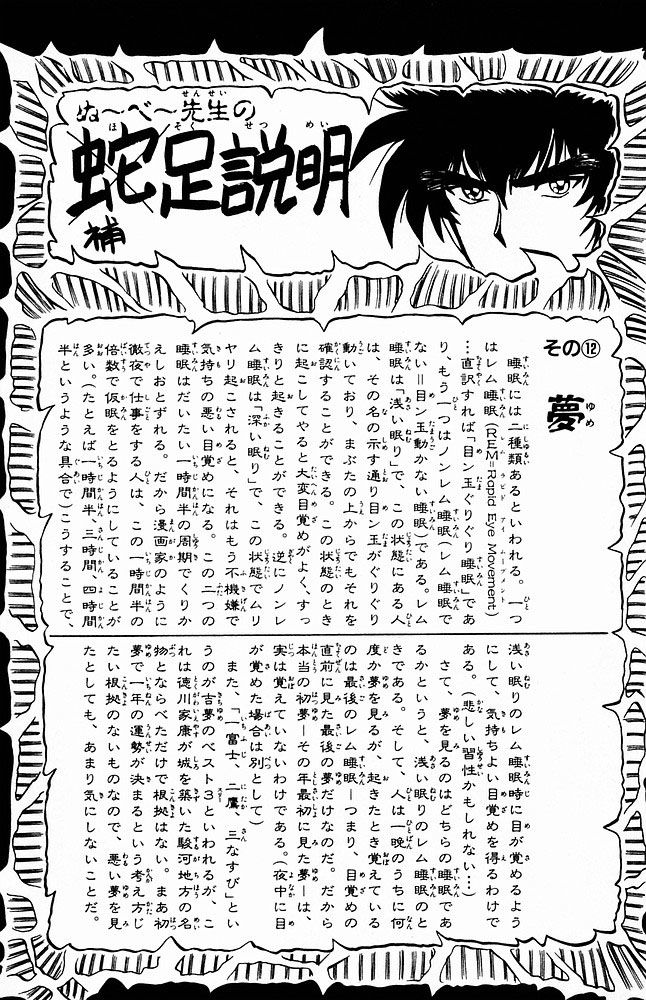 ぬ〜べ〜先生の
蛇足説明
補
その⑫
夢
睡眠には二種類あるといわれる。一つ
はレム睡眠(REM=Rapid Eye Movement)
…直訳すれば「目ン玉ぐりぐり睡眠」であ
り、もう一つはノンレム睡眠(レム睡眠で
ない＝目ン玉動かない睡眠)である。レム
睡眠は「浅い眠り」で、この状態にある人
は、その名の示す通り目ン玉がぐりぐり
動いており、まぶたの上からでもそれを
確認することができる。この状態のとき
に起こしてやると大変目覚めがよく、すっ
きりと起きることができる。逆にノンレ
ム睡眠は「深い眠り」で、この状態でムリ
ヤリ起こされると、それはもう不機嫌で
気持ちの悪い目覚めになる。この二つの
睡眠はだいたい一時間半の周期でくりか
えしおとずれる。だから漫画家のように
徹夜で仕事をする人は、この一時間半の
倍数で仮眠をとるようにしていることが
多い。(たとえば一時間半、三時間、四時間
半というような具合で)こうすることで、
浅い眠りのレム睡眠時に目が覚めるよう
にして、気持ちよい目覚めを得るわけで
ある。(悲しい習性かもしれない…)
さて、夢を見るのはどちらの睡眠であ
るかというと、浅い眠りのレム睡眠のと
きである。そして、人は一晩のうちに何
度か夢を見るが、起きたとき覚えている
のは最後のレム睡眠—つまり、目覚めの
直前に見た最後の夢だけなのだ。だから
本当の初夢—その年最初に見た夢—は、
実は覚えていないわけである。(夜中に目
が覚めた場合は別として)
また、「一富士、二鷹、三なすび」とい
うのが吉夢のベスト３といわれるが、こ
れは徳川家康が城を築いた駿河地方の名
物とならべただけで根拠はない。まあ初
夢で一年の運勢が決まるという考え方じ
たい根拠のないものなので、悪い夢を見
たとしても、あまり気にしないことだ。